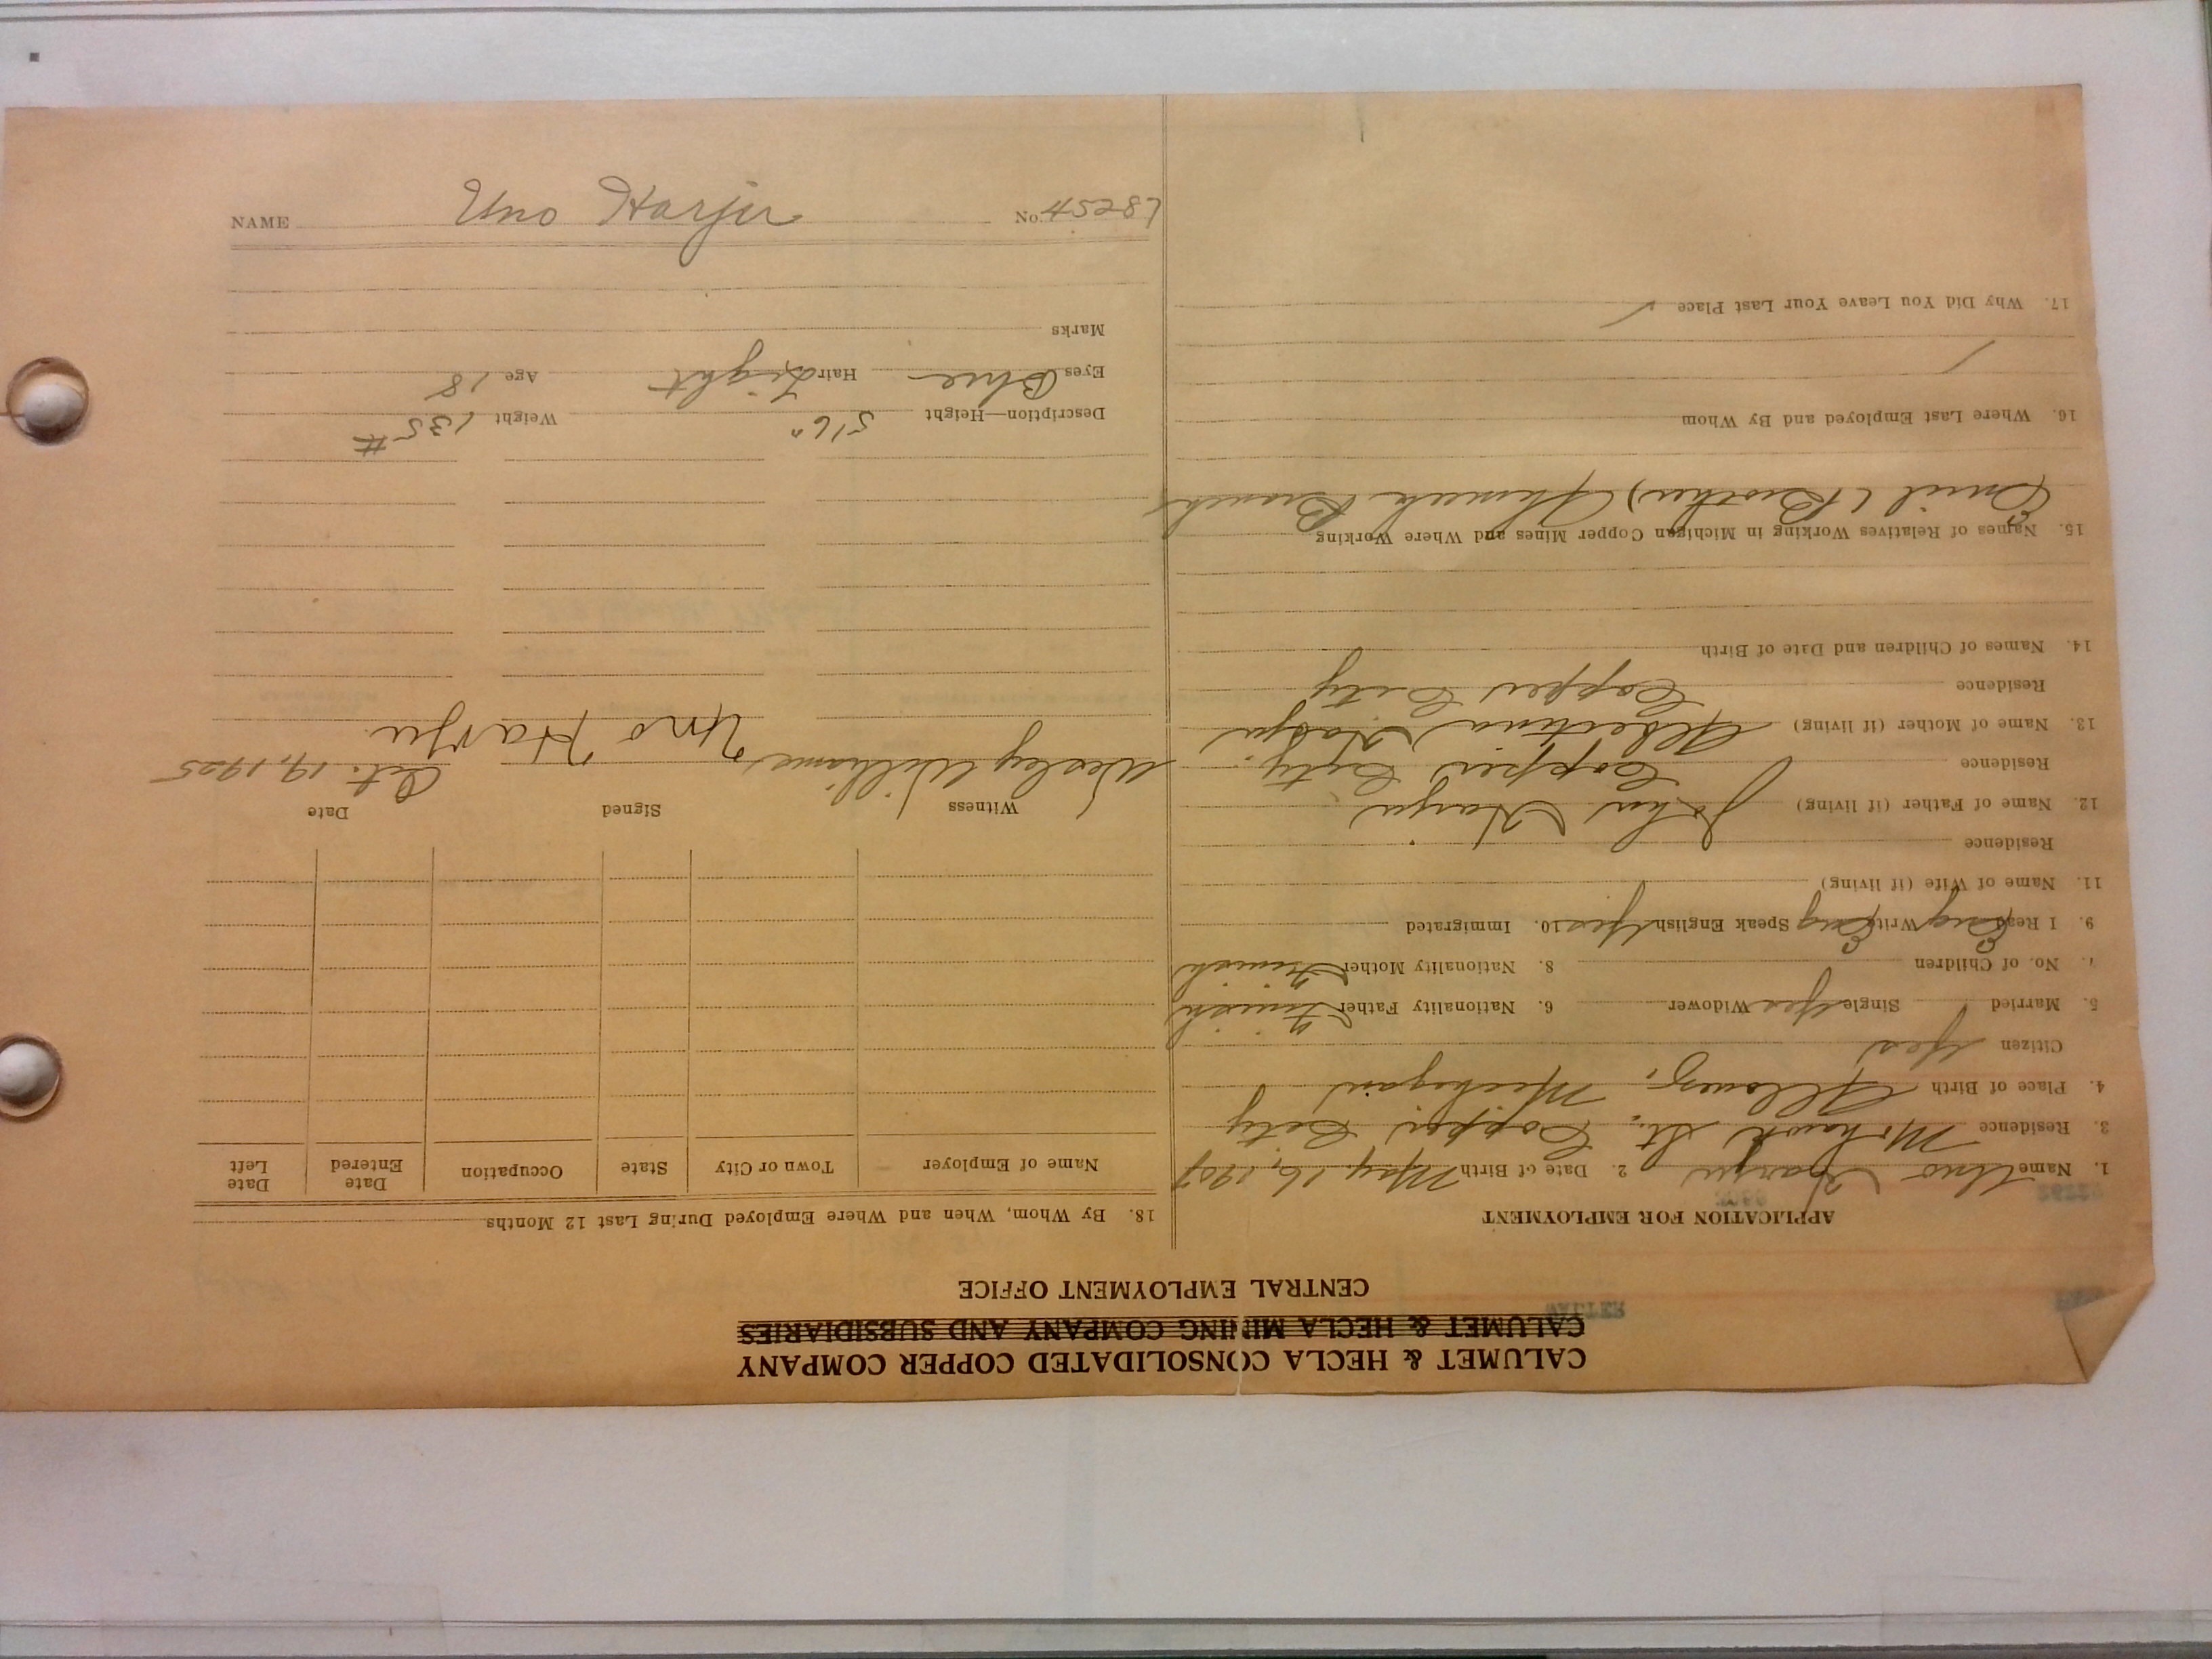 CALUMET & HECLA CONSOLIDATED COPPER COMPANY
CALUMET & HECLA MINING COMPANY AND SUBSIDIARIES
CENTRAL EMPLOYMENT OFFICE
APPLICATION FOR EMPLOYMENT
1. Name Uno Harju 2. Date of Birth May 16, 1907
3. Residence Mohawk St., Copper City
4. Place of Birth Allouez, Michigan
Citizen Yes
5. Married Single Yes Widower 6. Nationality Father Finnish
7. No. of Children 8. Nationality Mother Finnish
9. I Read Eng Write Eng Speak English Yes 10. Immigrated
11. Name of Wife (if living)
Residence
12. Name of Father (if living) John Harju
Residence Copper City.
13. Name of Mother (if living) Albertina Harju
Residence Copper City
14. Names of Children and Date of Birth
15. Names of Relatives Working in Michigan Copper Mines and Where Working
Emil (Brother) Ahmeek Branch
16. Where Last Employed and By Whom
17. Why Did You Leave Your Last Place
18. By Whom, When and Where Employed During Last 12 Months
Name of Employer Town or City State Occupation Date Entered Date Left
Witness Signed Date
Wesley Williams Uno Harju Oct. 19, 1925
Description—Height 5'6" Weight 135#
Eyes Blue Hair Light Age 18
Marks
NAME Uno Harju No. 45287